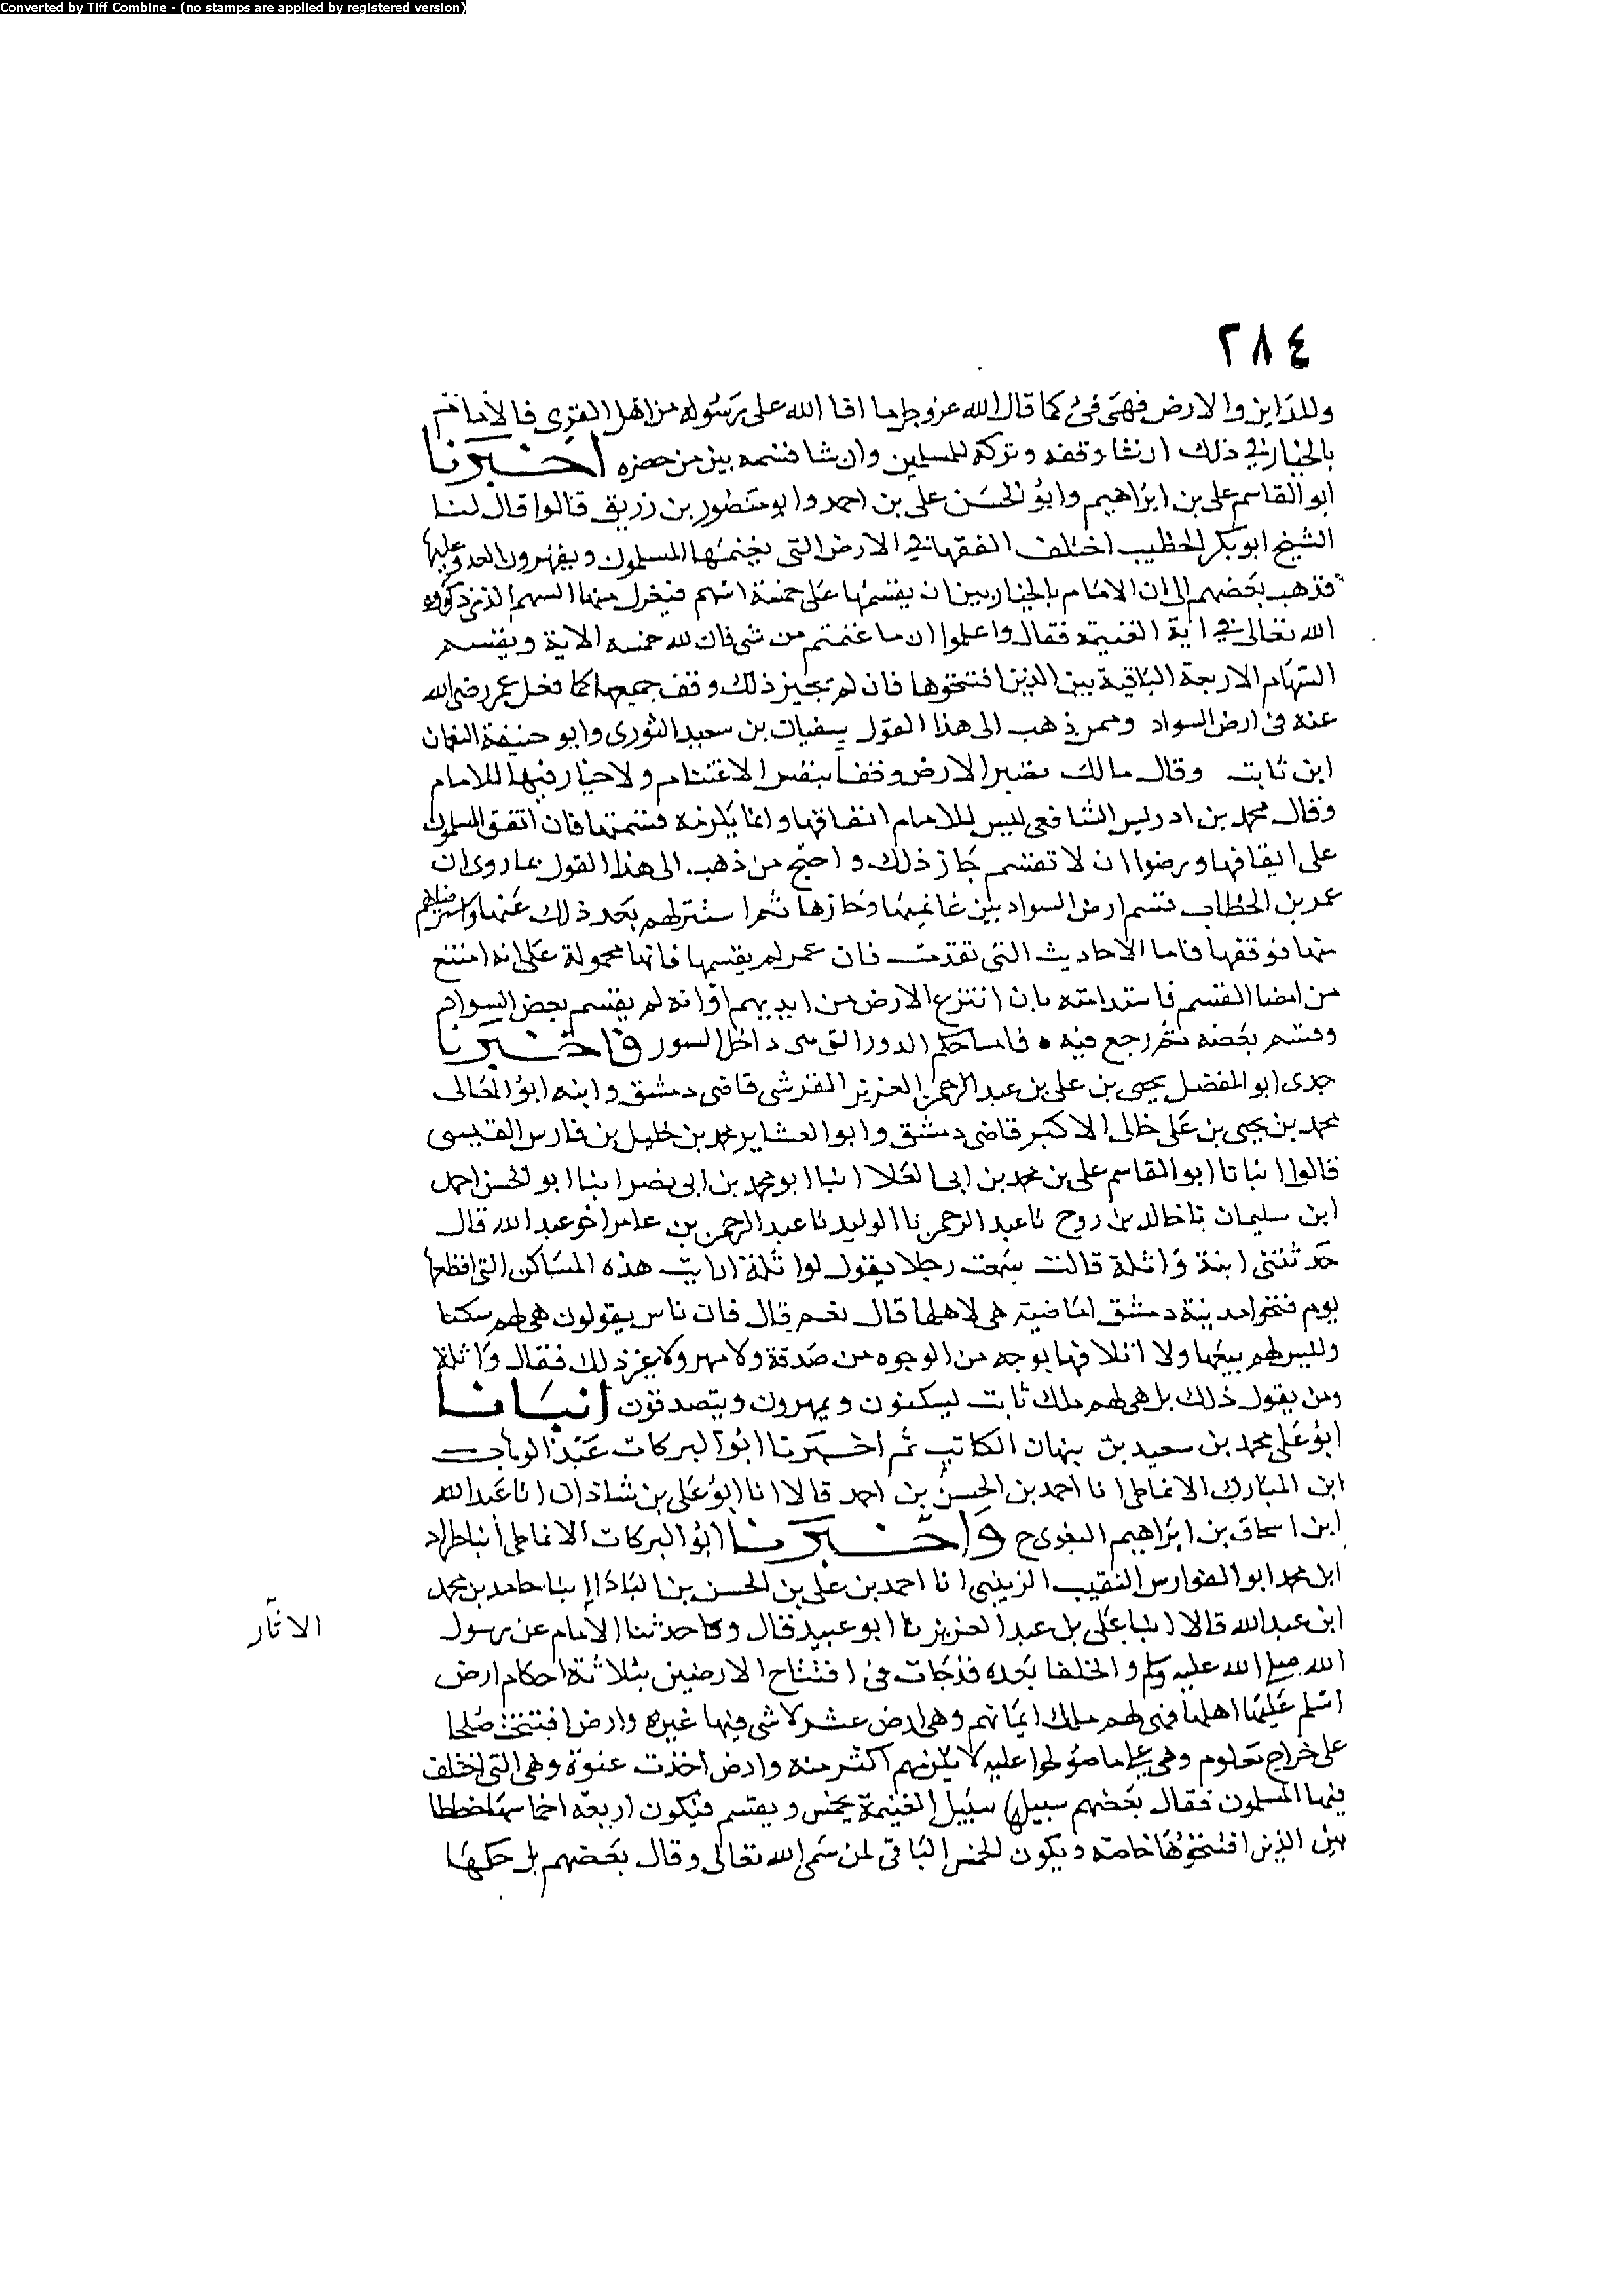 Converted by Tiff Combine - (no stamps are applied by registered version)
٢٨٤
وللمداين والارض فهي فئ كما قال الله عز وجل ما افا الله على رسوله من اهل القرى فالامام
بالخيار في ذلك ان شا وقفه وتركه للمسلمين وان شا قسمه بين من حضره اخبرنا
ابو القاسم علي بن ابراهيم وابو الحسن علي بن احمد وابو منصور بن زريق قالوا قال لنا
الشيخ ابو بكر الخطيب اختلف الفقها في الارض التي يغنمها المسلمون ويقهرون العدو عليها
فذهب بعضهم الى ان الامام بالخيار بين ان يقسمها على خمسة اسهم فيعزل منها السهم الذي ذكره
الله تعالى في اية الغنيمة فقال واعلموا ان ما غنمتم من شي فان لله خمسه الاية ويقسم
السهام الاربعة الباقية بين الذين افتتحوها فان لم يجيز ذلك وقف جميعها كما فعل عمر رضي الله
عنه في ارض السواد وممن ذهب الى هذا القول سفيان بن سعيد الثوري وابو حنيفة النعمان
ابن ثابت وقال مالك تصير الارض وقفا بنفس الاغتنام ولا خيار فيها للامام
وقال محمد بن ادريس الشافعي ليس للامام ايقافها وانما يلزمه قسمتها فان اتفق المسلمون
على ايقافها ورضوا ان لا تقسم جاز ذلك واحتج من ذهب الى هذا القول بما روي ان
عمر بن الخطاب قسم ارض السواد بين غانميها وحازها ثم استنزلهم بعد ذلك عنها واسترضاهم
منها فوقفها فاما الاحاديث التي تقدمت فان عمر لم يقسمها فانها محمولة على انه امتنع
من امضا القسم فاستدامته بان انتزع الارض من ايديهم او انه لم يقسم بعض السواد
وقسم بعضه ثم رجع فيه • فاما حكم الدور التي هي داخل السور فاخبرنا
جدي ابو المفضل يحيى بن علي بن عبد العزيز القرشي قاضي دمشق وابنه ابو المعالى
محمد بن يحيى بن علي خالي الاكبر قاضي دمشق وابو العشاير محمد بن خليل بن فارس القيسي
قالوا انباتا ابو القاسم علي بن محمد بن ابي العلا انبا ابو محمد بن ابي نصر انبا ابو الحسن احمد
ابن سليمان نا خالد بن روح نا عبد الرحمن نا الوليد نا عبد الرحمن بن عامر اخو عبد الله قال
حدثتني ابنة واثلة قالت سمعت رجلا يقول لواثلة ارايت هذه المساكن التي اقطعها
يوم فتحوا مدينة دمشق اماضية هي لاهلها قال نعم قال فان ناس يقولون هي لهم سكنا
وليس لهم بيعها ولا اتلافها بوجه من الوجوه من صدقة ولا مهر ولا غير ذلك فقال واثلة
ومن يقول ذلك بل هي لهم ملك ثابت يسكنون ويمهرون ويتصدقون انبانا
ابو علي محمد بن سعيد بن نبهان الكاتب ثم اخبرنا ابو البركات عبد الوهاب
ابن المبارك الانماطي انا احمد بن الحسن بن احمد قالا انا ابو علي بن شاذان انا عبد الله
ابن اسحاق بن ابراهيم البغوي ح واخبرنا ابو البركات الانماطي انبا طراد
ابن محمد ابو الفوارس النقيب الزينبي انا احمد بن علي بن الحسن بن البادا انبا حامد بن محمد
ابن عبد الله قالا انبا علي بن عبد العزيز نا ابو عبيد قال
الاثار
الله صلى الله عليه وسلم والخلفا بعده قد جات في افتتاح الارضين بثلاثة احكام ارض
اسلم عليها اهلها فهي لهم ملك ايمانهم وهي ارض عشر لا شي فيها غيره وارض افتتحت صلحا
على خراج معلوم وهي على ما صولحوا عليه لا يلزمهم اكثر منه وارض اخذت عنوة وهي التي اختلف
فيها المسلمون فقال بعضهم سبيلها سبيل الغنيمة يخمس ويقسم فيكون اربعة اخماسها خططا
بين الذين افتتحوها خاصة ويكون الخمس الباقي لمن سمى الله تعالى وقال بعضهم بل حكمها